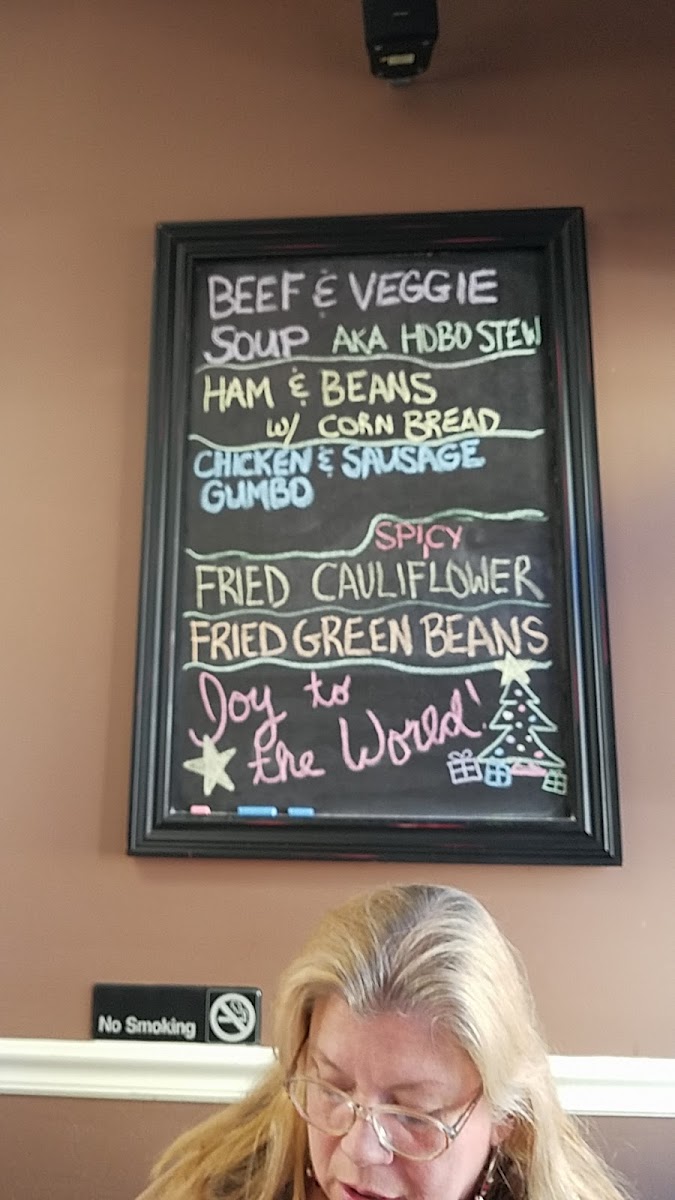 BEEF & VEGGIE
SOUP AKA HOBO STEW
HAM & BEANS
W/ CORN BREAD
CHICKEN & SAUSAGE
GUMBO
SPICY
FRIED CAULIFLOWER
FRIED GREEN BEANS
Joy to
the World!
No Smoking